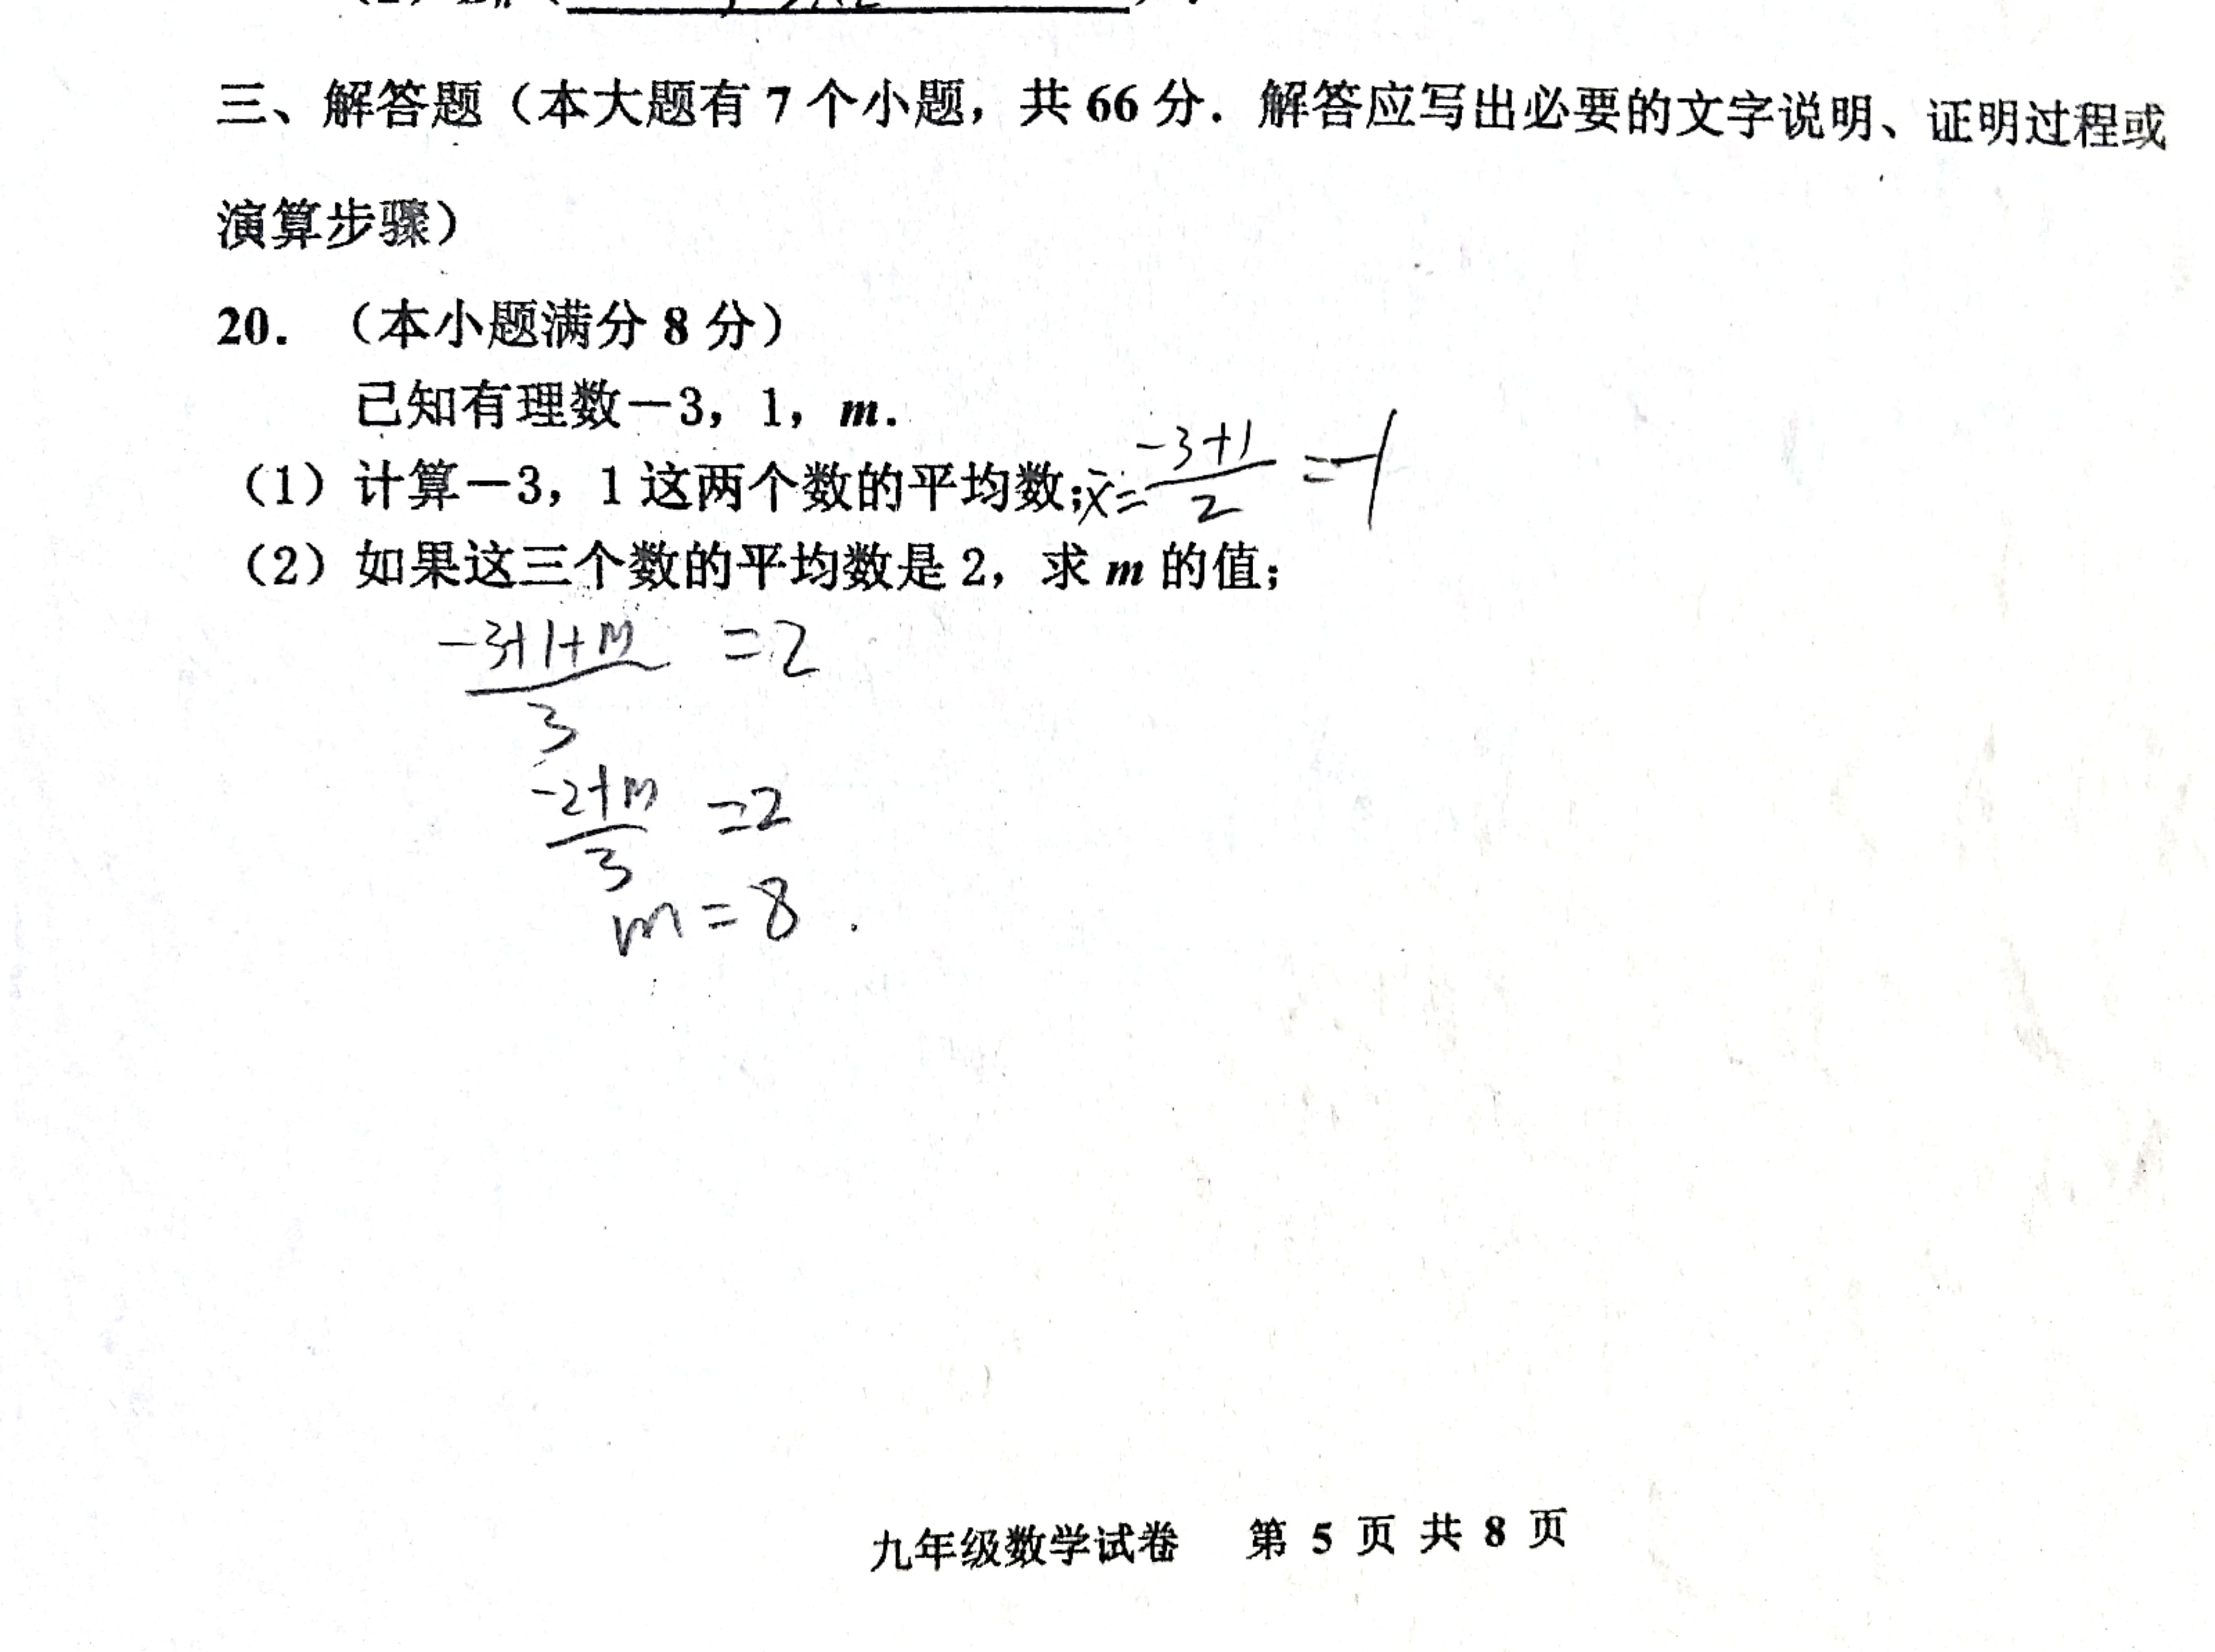 三、解答题（本大题有 7 个小题，共 66 分．解答应写出必要的文字说明、证明过程或
演算步骤）
20．（本小题满分 8 分）
已知有理数－3，1，m．
（1）计算－3，1 这两个数的平均数； x̄ = (-3+1)/2 = -1
（2）如果这三个数的平均数是 2，求 m 的值；
(-3+1+m)/3 = 2
(-2+m)/3 = 2
m = 8 .
九年级数学试卷 第 5 页 共 8 页